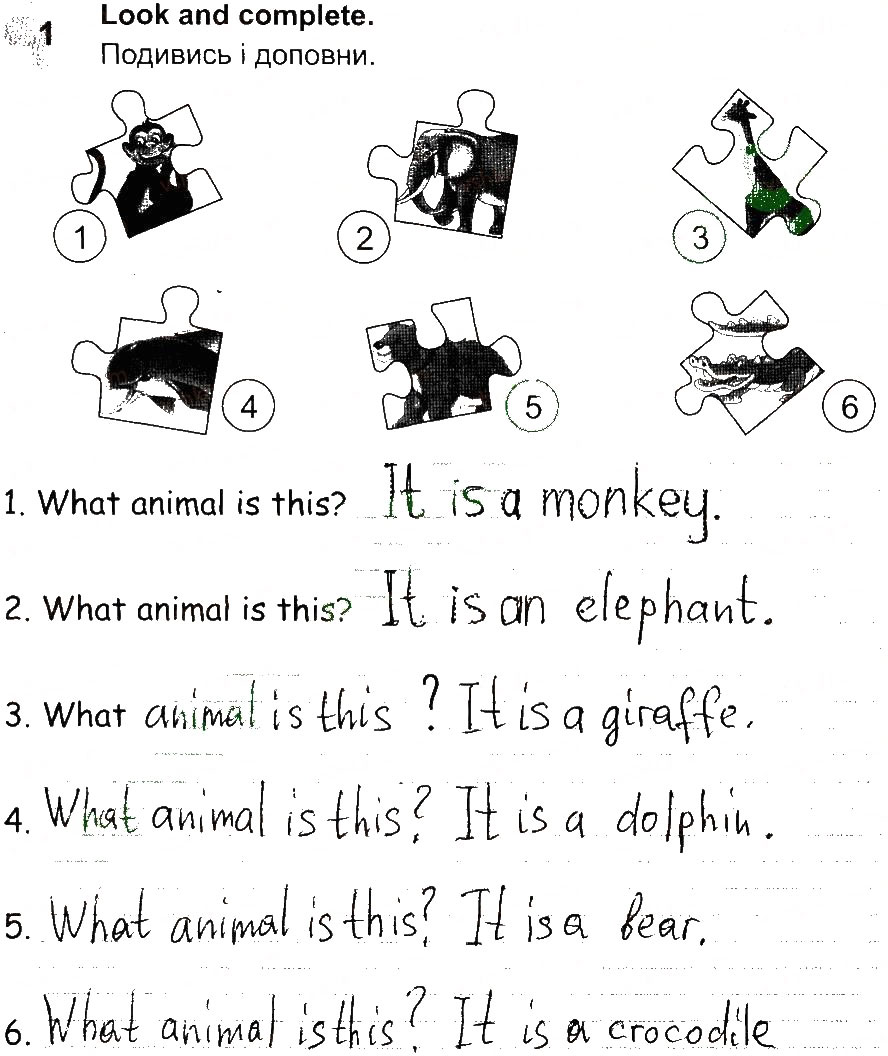 1 Look and complete.
Подивись і доповни.
1 2 3
4 5 6
1. What animal is this? It is a monkey.
2. What animal is this? It is an elephant.
3. What animal is this? It is a giraffe.
4. What animal is this? It is a dolphin.
5. What animal is this? It is a bear.
6. What animal is this? It is a crocodile